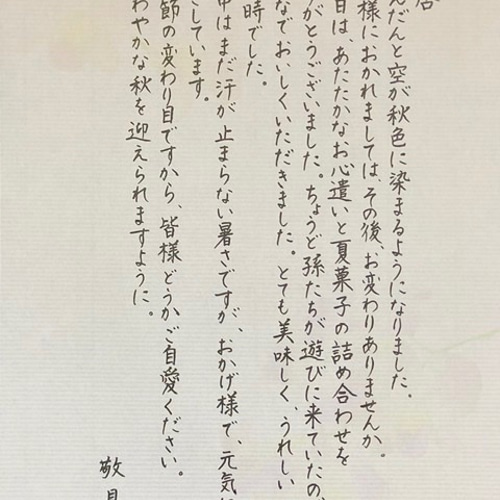 んだんと空が秋色に染まるようになりました。
様におかれましては、その後、お変わりありませんか。
日は、あたたかなお心遣いと夏菓子の詰め合わせを
がとうございました。ちょうど孫たちが遊びに来ていたの、
なでおいしくいただきました。とても美味しく、うれしい
時でした。
中はまだ汗が止まらない暑さですが、おかげ様で、元気に
しています。
節の変わり目ですから、皆様どうかご自愛ください。
わやかな秋を迎えられますように。
敬具